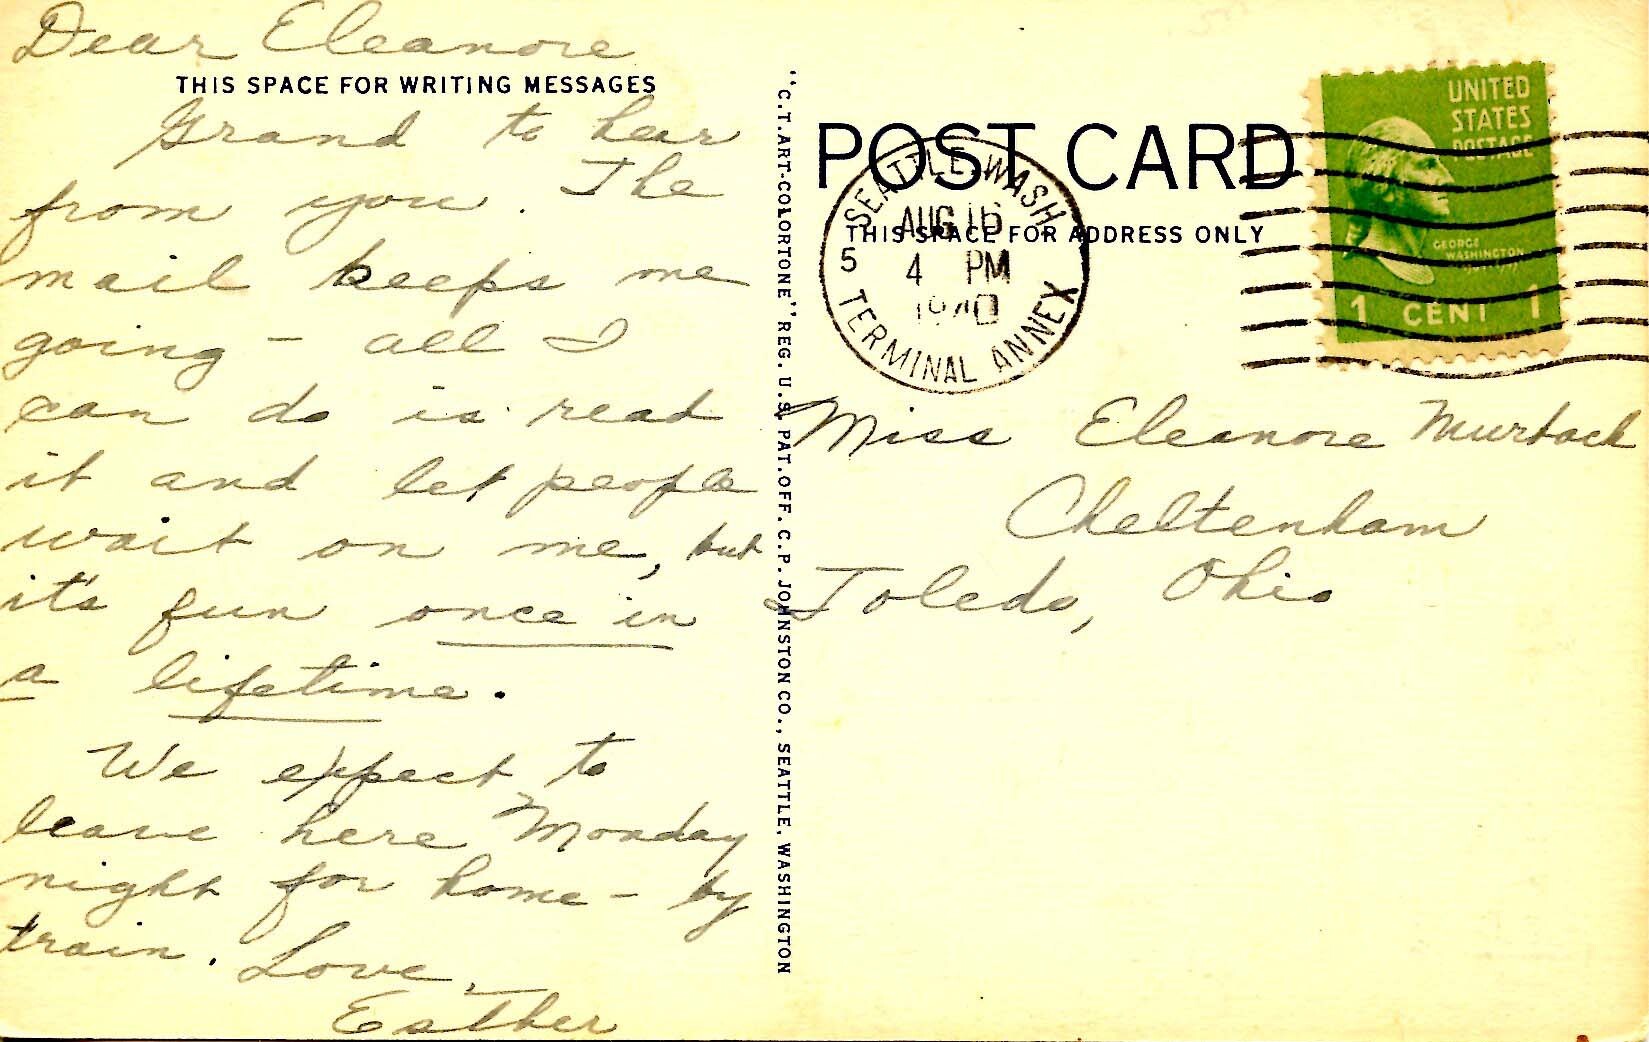 Dear Eleanore
THIS SPACE FOR WRITING MESSAGES
Grand to hear
from you. The
mail keeps me
going - all I
can do is read
it and let people
wait on me, but
it's fun once in
a lifetime.
We expect to
leave here Monday
night for home - by
train. Love,
Esther
"C.T. ART-COLORTONE" REG. U.S. PAT. OFF. C. P. JOHNSTON CO., SEATTLE, WASHINGTON
POST CARD
THIS SPACE FOR ADDRESS ONLY
SEATTLE, WASH.
AUG 16
5 4 PM
1940
TERMINAL ANNEX
UNITED
STATES
POSTAGE
GEORGE
WASHINGTON
1 CENT 1
Miss Eleanore Murbach
Cheltenham
Toledo, Ohio